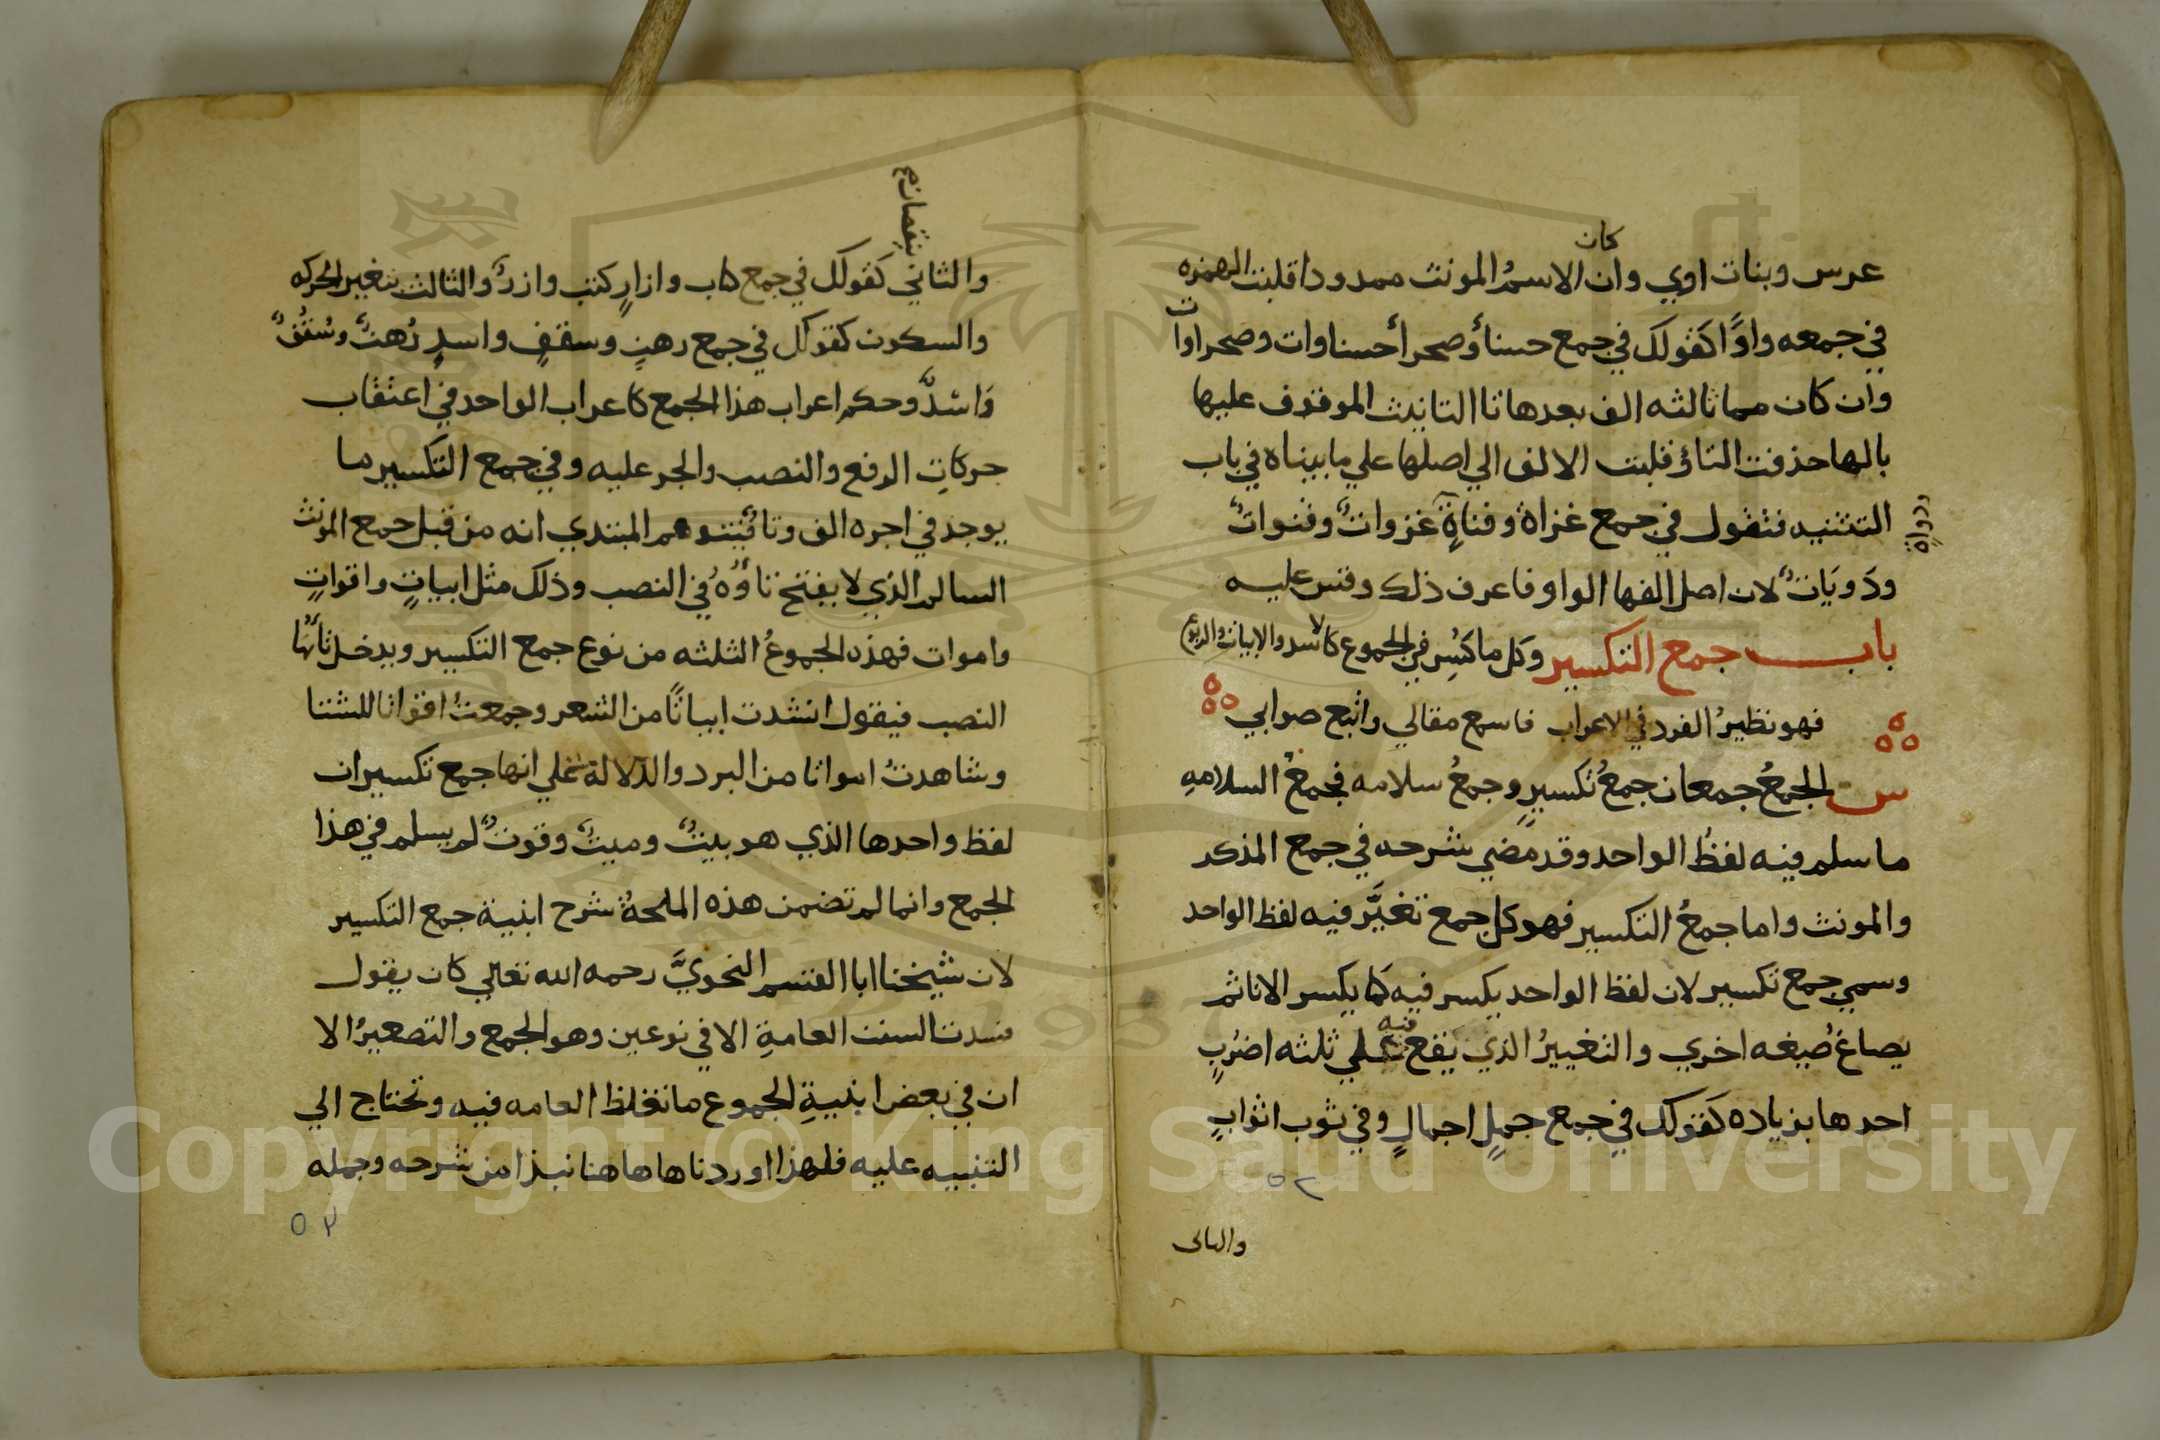 كان
عرس وبنات اوي وان الاسمُ المونث ممدودا قلبت الهمزه
في جمعه واوًا كقولك في جمع حسنأ وصحرأ حسناوات وصحراوات
وان كان مما ثالثه الف بعدها تا التانيث الموقوف عليها
بالها حذفت التاؤ قلبت الالف الي اصلها علي ما بيناه في باب
التثنيه فتقول في جمع غزاة وقناةٍ غزواتٌ وقنواتٌ
ودواة
ودَويَاتٌ لان اصل الفها الواو فاعرف ذلك وقس عليه
باب جمع التكسير وكل ما كُسِر في الجموع كالاسد والابيات والربوع
فهو نظيرُ الفرد في الاعراب فاسمع مقالي واتبع صوابي
س الجمعُ جمعان جمعُ تكسيرٍ وجمعُ سلامه فجمعُ السلامهِ
ما سلم فيه لفظُ الواحد وقد مضي شرحه في جمع المذكر
والمونث واما جمعُ التكسير فهو كل جمع تغيَّر فيه لفظ الواحد
وسمي جمع تكسير لان لفظ الواحد يكسر فيه كما يكسر الانا ثم
يصاغ صُيغه اخري والتغييرُ الذي يَقع فيه علي ثلثه اضرُبٍ
احدها بزياده كقَولك في جمع جملٍ اجمالٍ وفي ثوب اثوابٍ
٥٢
والثاني
بنقصان
والثاني كقولك في جمع كتاب وازارٍ كتب وازرٌ والثالث بتغيير الحركه
والسكون كقولك في جمع رهنٍ وسقفٍ واسدٍ رُهنٌ وسُقُفٌ
وَاسْدٌ وحكم اعراب هذا الجمع كاعراب الواحد في اعتقاب
حركاتِ الرفع والنصب والجر عليه وفي جمع التكسير ما
يوجد في اخره الف وتا فيتوهم المبتدي انه من قبل جمع المونث
السالم الذي لا يفتح تاؤهُ في النصب وذلك مثل ابياتٍ واقواتٍ
واموات فهذه الجموعُ الثلثه من نوع جمع التكسير ويدخل تأَها
النصب فيقول انشدت ابياتًا من الشعر وجمعتُ اقواتا للشتا
وشاهدتُ امواتا من البرد والدلالة علي انها جمع تكسير ان
لفظ واحدها الذي هو بيتٌ وميتٌ وقوتٌ لم يسلم في هذا
الجمع وانما لم تضمن هذه الملحةُ شرح ابنية جمع التكسير
لان شيخنا ابا القسم النحويَّ رحمه الله تعالي كان يقول
فسدت السنت العامةِ الا في نوعين وهو الجمع والتصغيرُ الا
ان في بعض ابنيةِ الجموع ما تغلظ العامه فيه وتحتاج الي
التنبيه عليه فلهذا اوردناها هاهنا نبذا من شرحه وجمله
٥٢
Copyright © King Saud University
1957